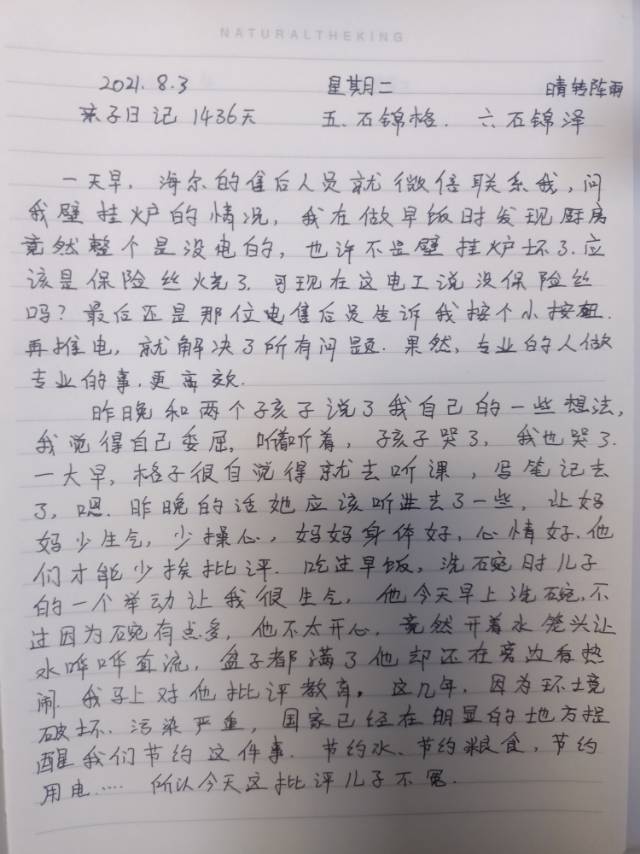 NATURALTHEKING
2021.8.3 星期二 晴转阵雨
亲子日记 1436天 五.石锦格. 六石锦泽
一天早,海尔的售后人员就微信联系我,问
我壁挂炉的情况,我在做早饭时发现厨房
竟然整个是没电的,也许不是壁挂炉坏了.应
该是保险丝烧了.可现在这电工说没保险丝
吗?最后还是那位电售后员告诉我按个小按钮.
再推电,就解决了所有问题.果然,专业的人做
专业的事.更高效.
昨晚和两个孩子说了我自己的一些想法,
我觉得自己委屈,听着听着,孩子哭了,我也哭了.
一大早,格子很自觉得就去听课,写笔记去
了,嗯.昨晚的话她应该听进去了一些,让妈
妈少生气,少操心,妈妈身体好,心情好.他
们才能少挨批评.吃过早饭,洗碗时儿子
的一个举动让我很生气,他今天早上洗碗,不
过因为碗有点多,他不太开心,竟然开着水笼头让
水哗哗直流,盆子都满了他却还在旁边看热
闹.我马上对他批评教育,这几年,因为环境
破坏.污染严重,国家已经在明显的地方提
醒我们节约这件事.节约水、节约粮食,节约
用电……所以今天这批评儿子不冤.